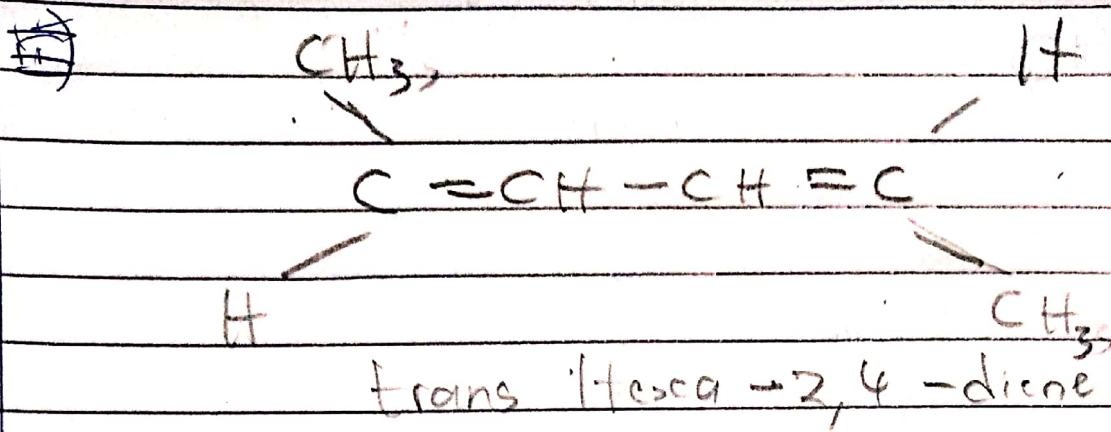 E)
CH3, H
C = CH - CH = C
H CH3,
trans Hexa - 2,4 - diene